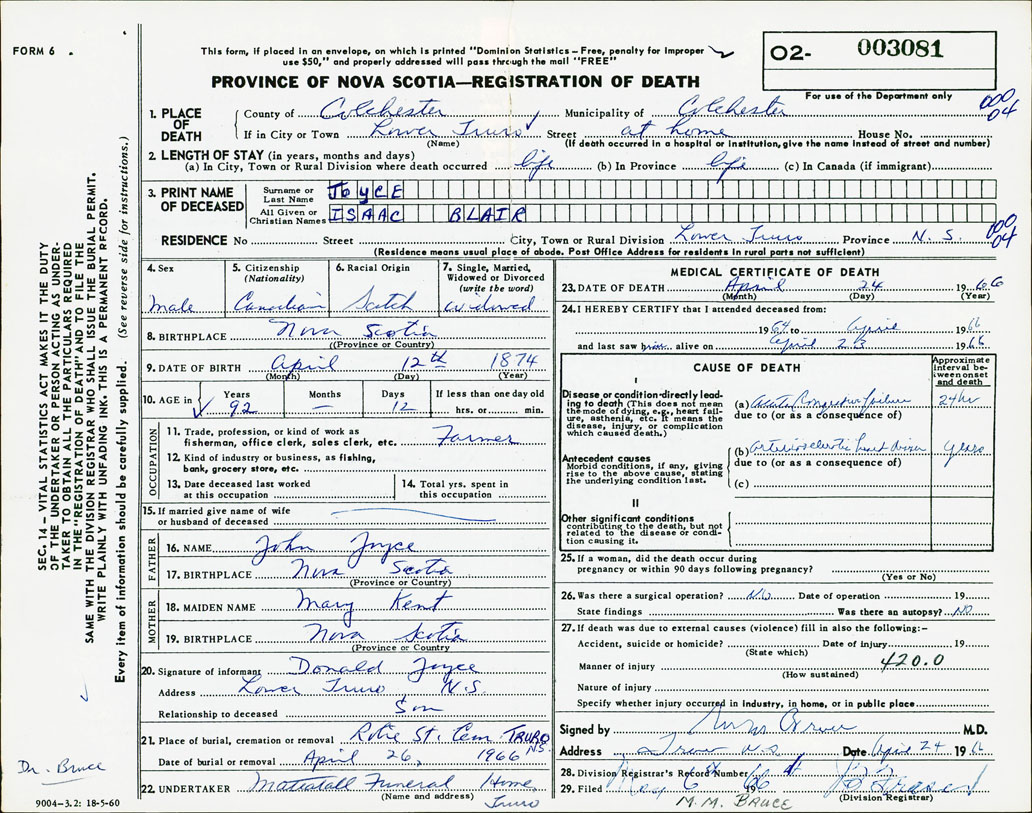 FORM 6
This form, if placed in an envelope, on which is printed "Dominion Statistics – Free, penalty for improper
use $50," and properly addressed will pass through the mail "FREE"
PROVINCE OF NOVA SCOTIA—REGISTRATION OF DEATH
O2- 003081
For use of the Department only
000
04
1. PLACE OF DEATH
County of Colchester Municipality of Colchester
If in City or Town Lower Truro Street at home House No.
(Name) (If death occurred in a hospital or institution, give the name instead of street and number)
2. LENGTH OF STAY (in years, months and days)
(a) In City, Town or Rural Division where death occurred life (b) In Province life (c) In Canada (if immigrant)
3. PRINT NAME OF DECEASED
Surname or Last Name JOYCE
All Given or Christian Names ISAAC BLAIR
RESIDENCE No Street City, Town or Rural Division Lower Truro Province N. S.
000
04
(Residence means usual place of abode. Post Office Address for residents in rural parts not sufficient)
4. Sex
male
5. Citizenship
(Nationality)
Canadian
6. Racial Origin
Scotch
7. Single, Married,
Widowed or Divorced
(write the word)
widowed
8. BIRTHPLACE Nova Scotia
(Province or Country)
9. DATE OF BIRTH April 12th 1874
(Month) (Day) (Year)
10. AGE in Years Months Days If less than one day old
92 — 12 hrs. or min.
OCCUPATION
11. Trade, profession, or kind of work as
fisherman, office clerk, sales clerk, etc. Farmer
12. Kind of industry or business, as fishing,
bank, grocery store, etc.
13. Date deceased last worked
at this occupation
14. Total yrs. spent in
this occupation
15. If married give name of wife
or husband of deceased
FATHER
16. NAME John Joyce
17. BIRTHPLACE Nova Scotia
(Province or Country)
MOTHER
18. MAIDEN NAME Mary Kent
19. BIRTHPLACE Nova Scotia
(Province or Country
20. Signature of informant Donald Joyce
Address Lower Truro N.S.
Relationship to deceased Son
21. Place of burial, cremation or removal St. Cem. TRURO
N.S.
Date of burial or removal April 26, 1966
22. UNDERTAKER Mattatall Funeral Home,
(Name and address) Truro
MEDICAL CERTIFICATE OF DEATH
23. DATE OF DEATH April 24 1966
(Month) (Day) (Year)
24. I HEREBY CERTIFY that I attended deceased from:
1964 to April 1966
and last saw him alive on April 23 1966
CAUSE OF DEATH
Approximate
interval be-
tween onset
and death
I
Disease or condition directly lead-
ing to death (This does not mean
the mode of dying, e.g., heart fail-
ure, asthenia, etc. It means the
disease, injury, or complication
which caused death.)
(a) Acute Congestive failure 24hr
due to (or as a consequence of)
Antecedent causes
Morbid conditions, if any, giving
rise to the above cause, stating
the underlying condition last.
(b) arteriosclerotic heart disease years
due to (or as a consequence of)
(c)
II
Other significant conditions
contributing to the death, but not
related to the disease or condi-
tion causing it.
25. If a woman, did the death occur during
pregnancy or within 90 days following pregnancy?
(Yes or No)
26. Was there a surgical operation? No Date of operation 19
State findings Was there an autopsy? No
27. If death was due to external causes (violence) fill in also the following:–
Accident, suicide or homicide? Date of injury 19
(State which)
Manner of injury 420.0
(How sustained)
Nature of injury
Specify whether injury occurred in industry, in home, or in public place
Signed by M M Bruce M.D.
Address Truro N.S Date April 24 1966
28. Division Registrar's Record Number
29. Filed May 6 1966
M. M. BRUCE
(Division Registrar)
SEC. 14 – VITAL STATISTICS ACT MAKES IT THE DUTY
OF THE UNDERTAKER OR PERSON ACTING AS UNDER-
TAKER TO OBTAIN ALL THE PARTICULARS REQUIRED
IN THE "REGISTRATION OF DEATH" AND TO FILE THE
SAME WITH THE DIVISION REGISTRAR WHO SHALL ISSUE THE BURIAL PERMIT.
WRITE PLAINLY WITH UNFADING INK. THIS IS A PERMANENT RECORD.
Every item of information should be carefully supplied. (See reverse side for instructions.)
Dr. Bruce
9004–3.2: 18-5-60